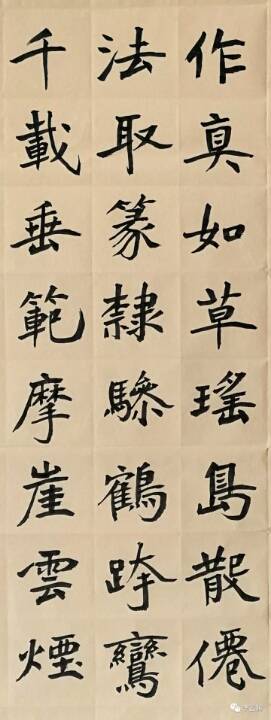 作真如草瑤島散僊
法取篆隸驂鶴跨鸞
千載垂範摩崖雲煙